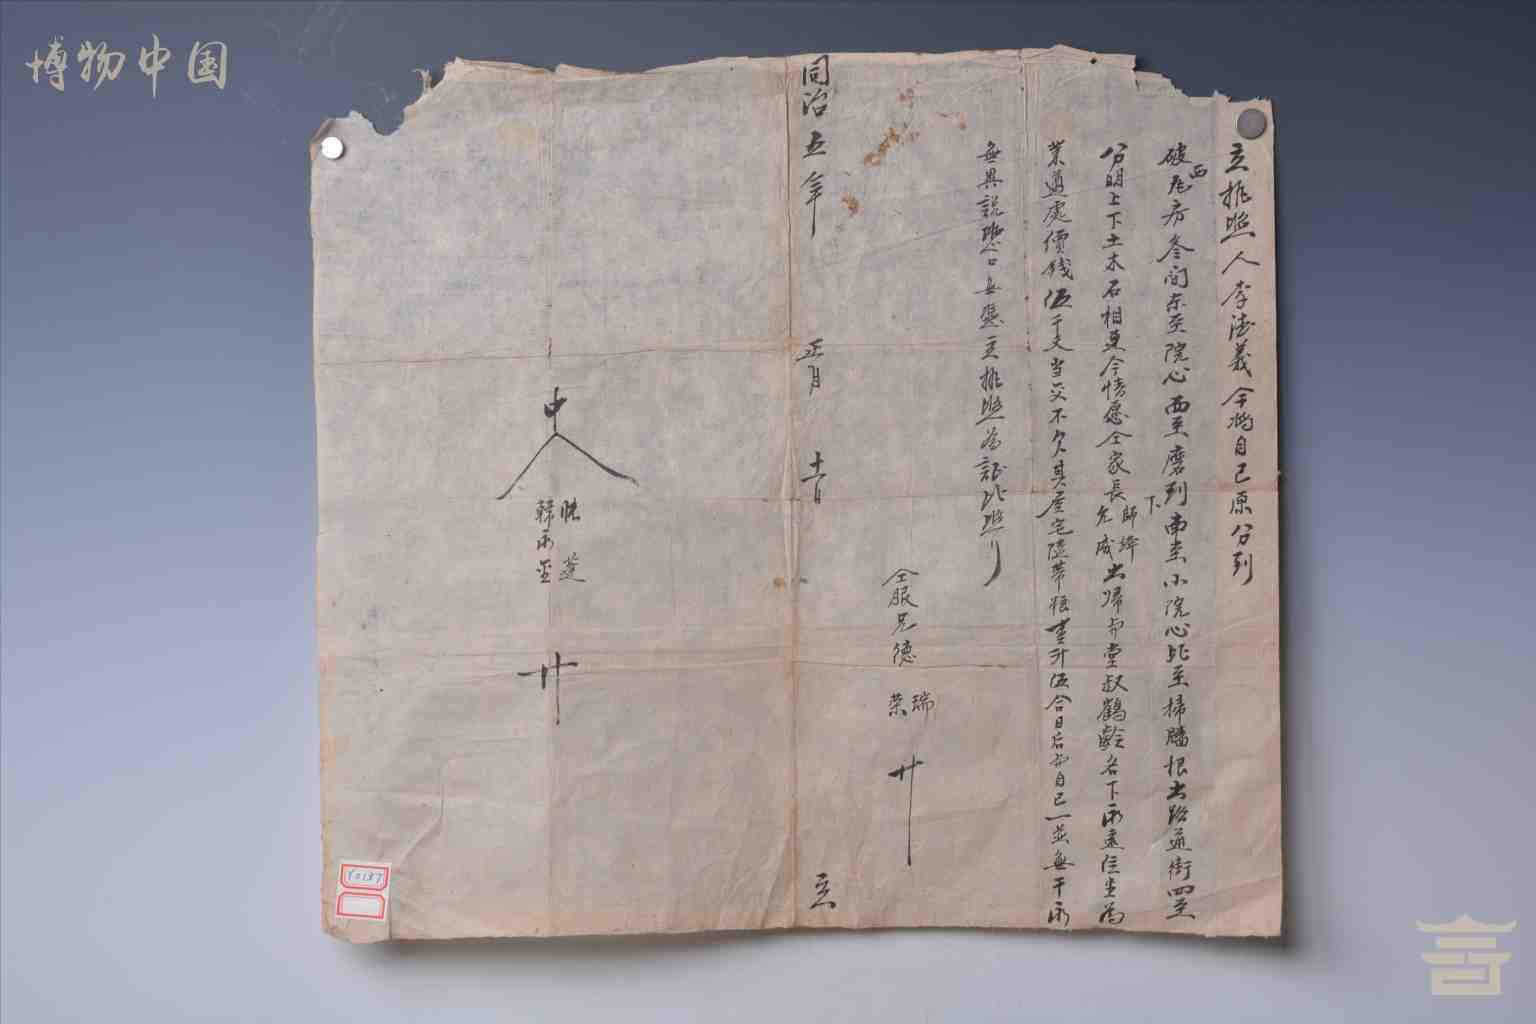 博物中国
立推照人李德義今將自己原分到
西
破瓦房叁间東至院心西至磨到南至小院心北至掃牆根出路通街四至
下
分明上下土木石相連今情愿仝家長
師緯
允成
出歸于堂叔鶴齡名下永遠住坐為
業遵處價錢伍千文当交不欠其屋宅隨帶粮壹升伍合日后與自己一並無干永
無異說恐口無憑立推照為証此照
仝服兄德
瑞
榮
廿
同治五年 正月 十一日 立
中人
韓永金
廿
Y0137